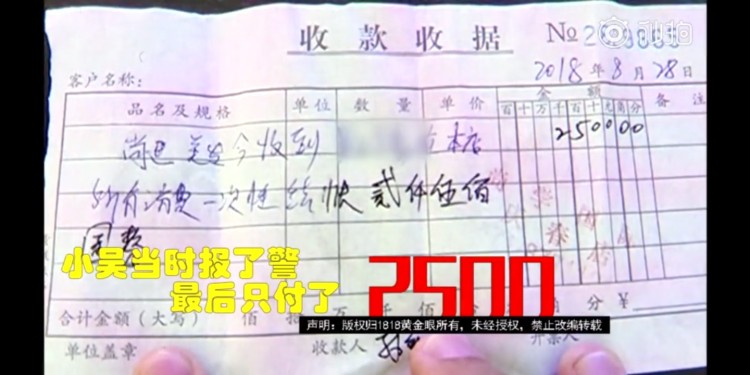 秒拍
收款收据 №
2018年8月28日
客户名称：
品名及规格 单位 数量 单价 金额 备注
百十万千百十元角分
250000
尚邑美发今收到 在本店
所有消费一次性结快 贰仟伍佰
圆整
小吴当时报了警
最后只付了 2500
声明：版权归1818黄金眼所有，未经授权，禁止改编转载
合计金额（大写） 佰 拾 万 仟 佰 角 分 ￥
单位盖章 收款人 开票人